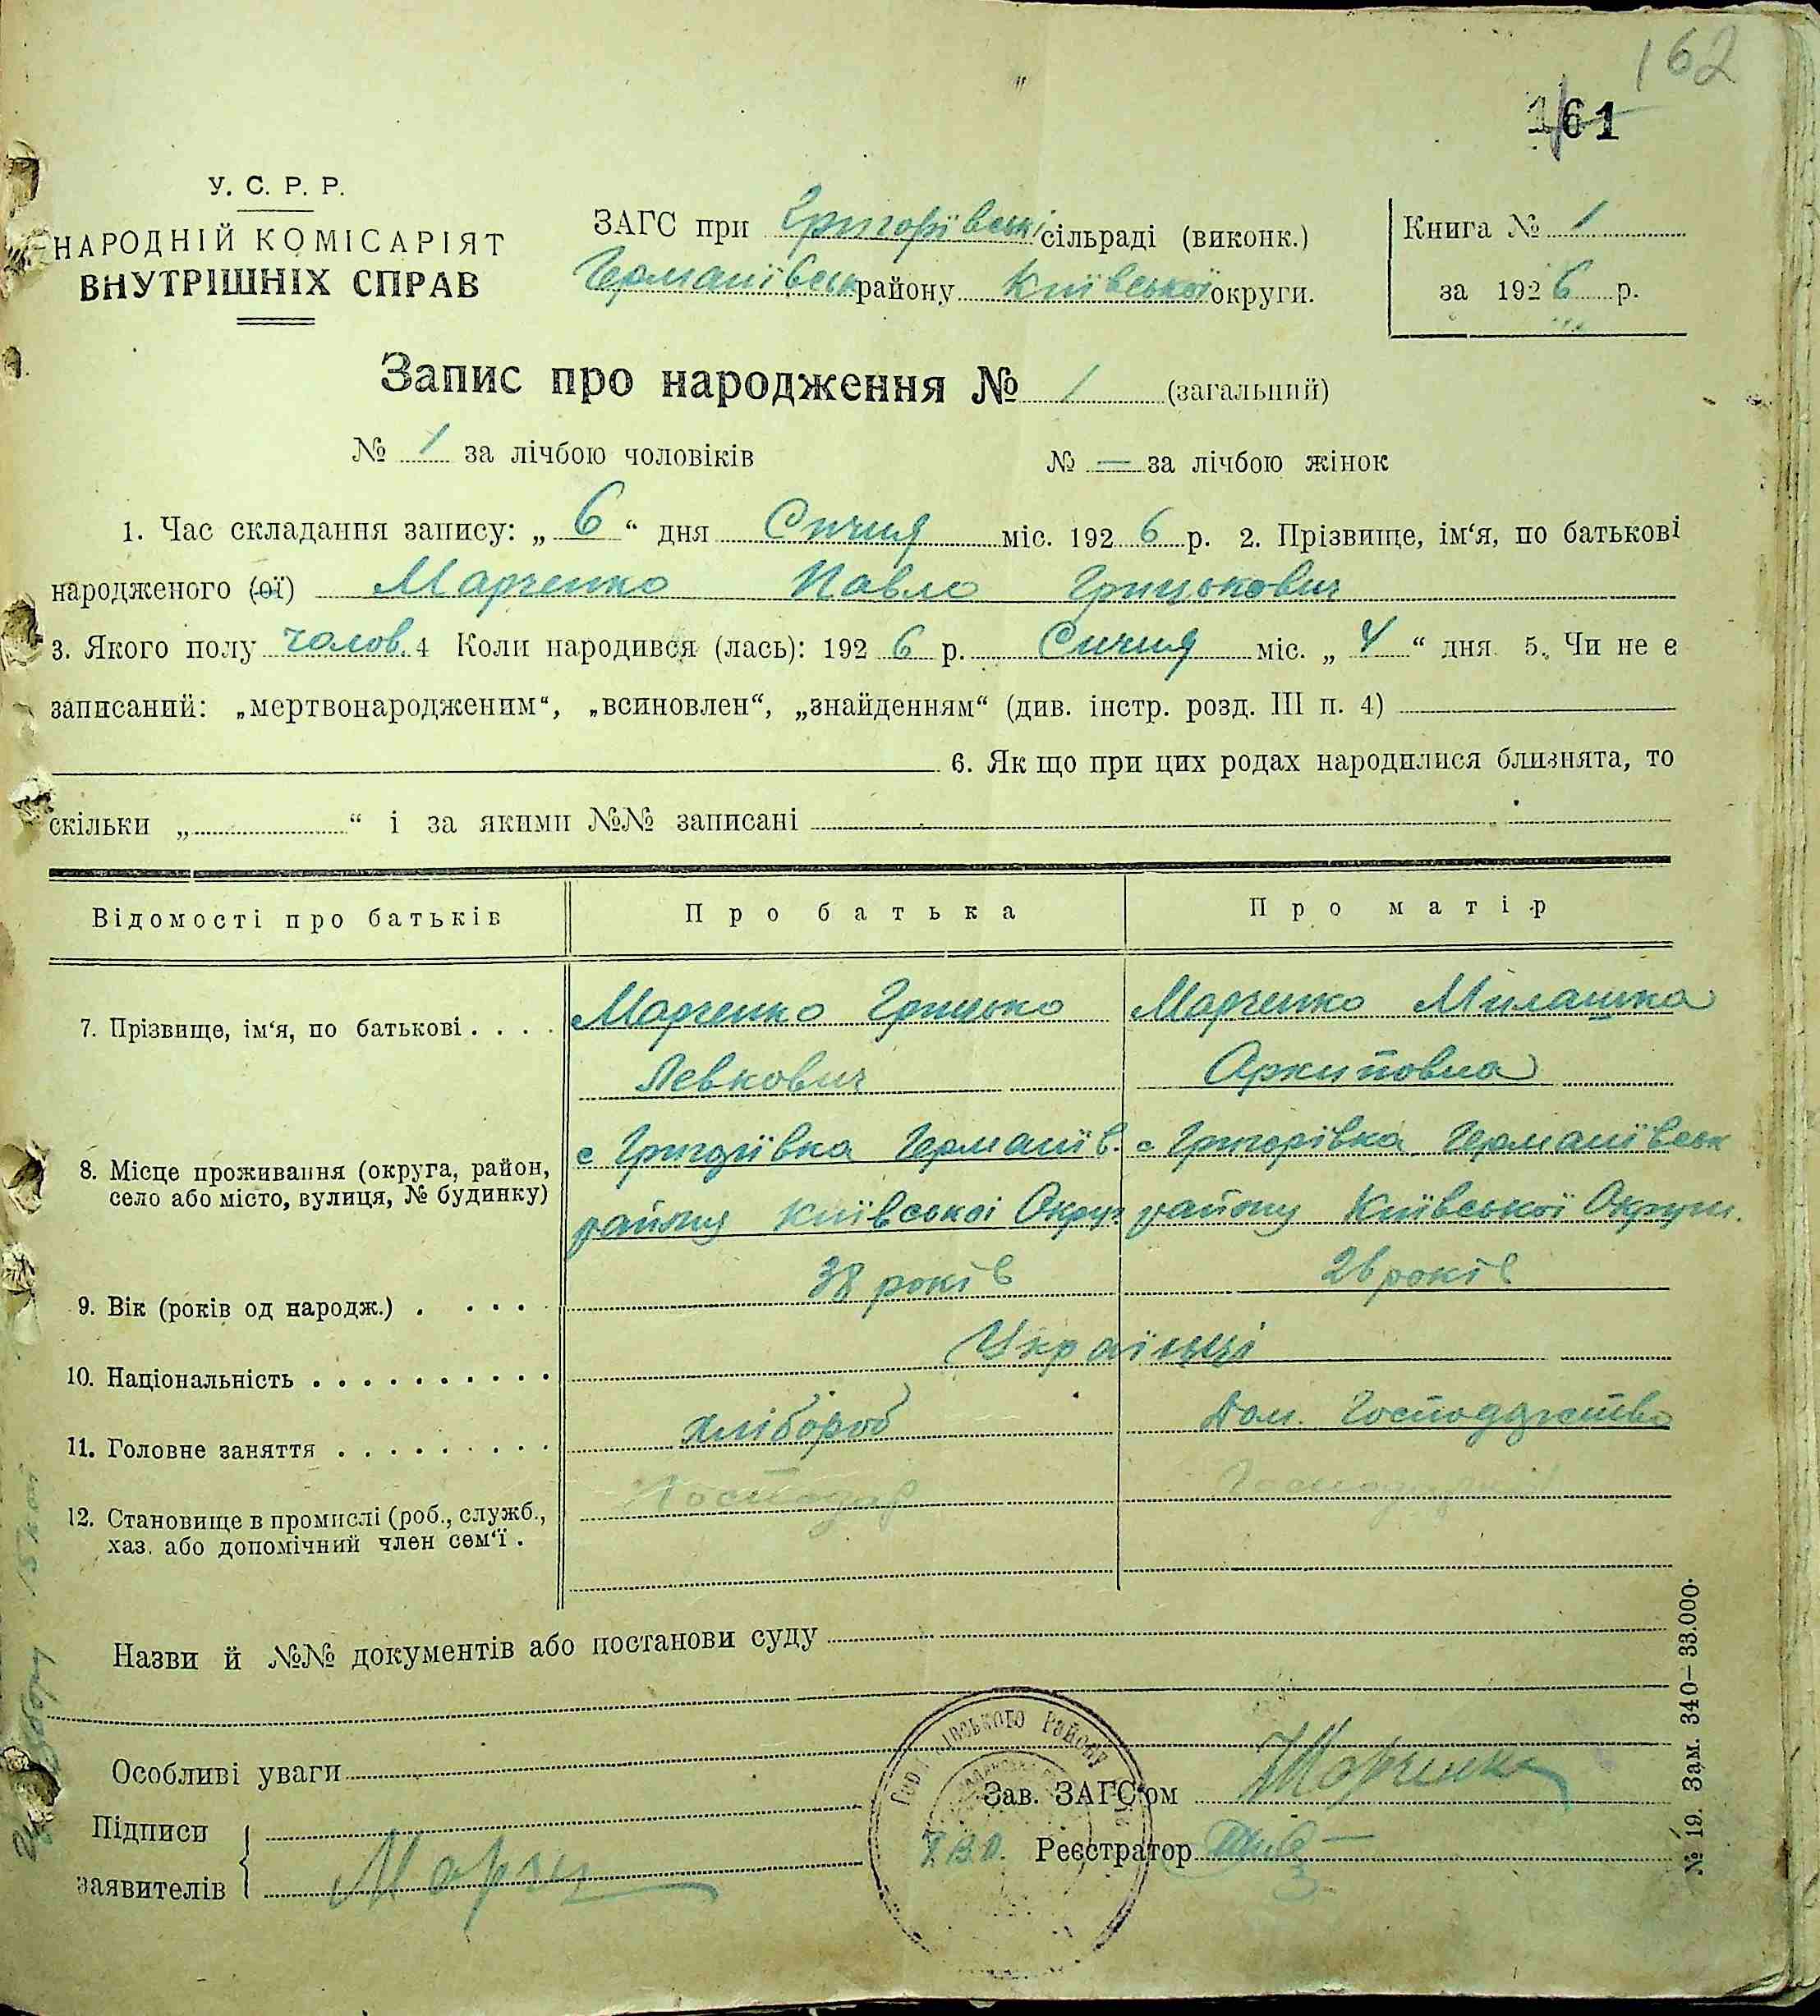 162
161
У. С. Р. Р.
НАРОДНІЙ КОМІСАРІЯТ
ВНУТРІШНІХ СПРАВ
ЗАГС при Григорївські сільраді (виконк.)
Германівськ району Київської округи.
Книга № 1
за 1926 р.
Запис про народження № 1 (загальний)
№ 1 за лічбою чоловіків № — за лічбою жінок
1. Час складання запису: „ 6 “ дня Січня міс. 1926 р. 2. Прізвище, ім‘я, по батькові
народженого (ої) Марченко Павло Грицькович
3. Якого полу чолов. 4 Коли народився (лась): 1926 р. Січня міс. „ 4 “ дня 5. Чи не є
записаний: „мертвонародженим“, „всиновлен“, „знайденням“ (див. інстр. розд. III п. 4)
6. Як що при цих родах народилися близнята, то
скільки „ “ і за якими №№ записані
Відомості про батьків Про батька Про матір
7. Прізвище, ім‘я, по батькові . . . . Марченко Грицько Марченко Милашка
Левкович Архиповна
8. Місце проживання (округа, район, с Григорівка Германів. с Григорівка Германівськ
село або місто, вулиця, № будинку) району Київської Округ району Київської Округи.
9. Вік (років од народж.) . . . . 38 років 26 років
10. Національність . . . . . . . . . . Українці
11. Головне заняття . . . . . . . . . хлібороб Дом. Господарство
12. Становище в промислі (роб., служб., Господар
хаз. або допомічний член сем‘ї .
Назви й №№ документів або постанови суду
Особливі уваги
Зав. ЗАГС‘ом Марченко
Підписи
заявителів Марч
Т.В.О. Реєстратор
Району
№ 19. Зам. 340—33.000.